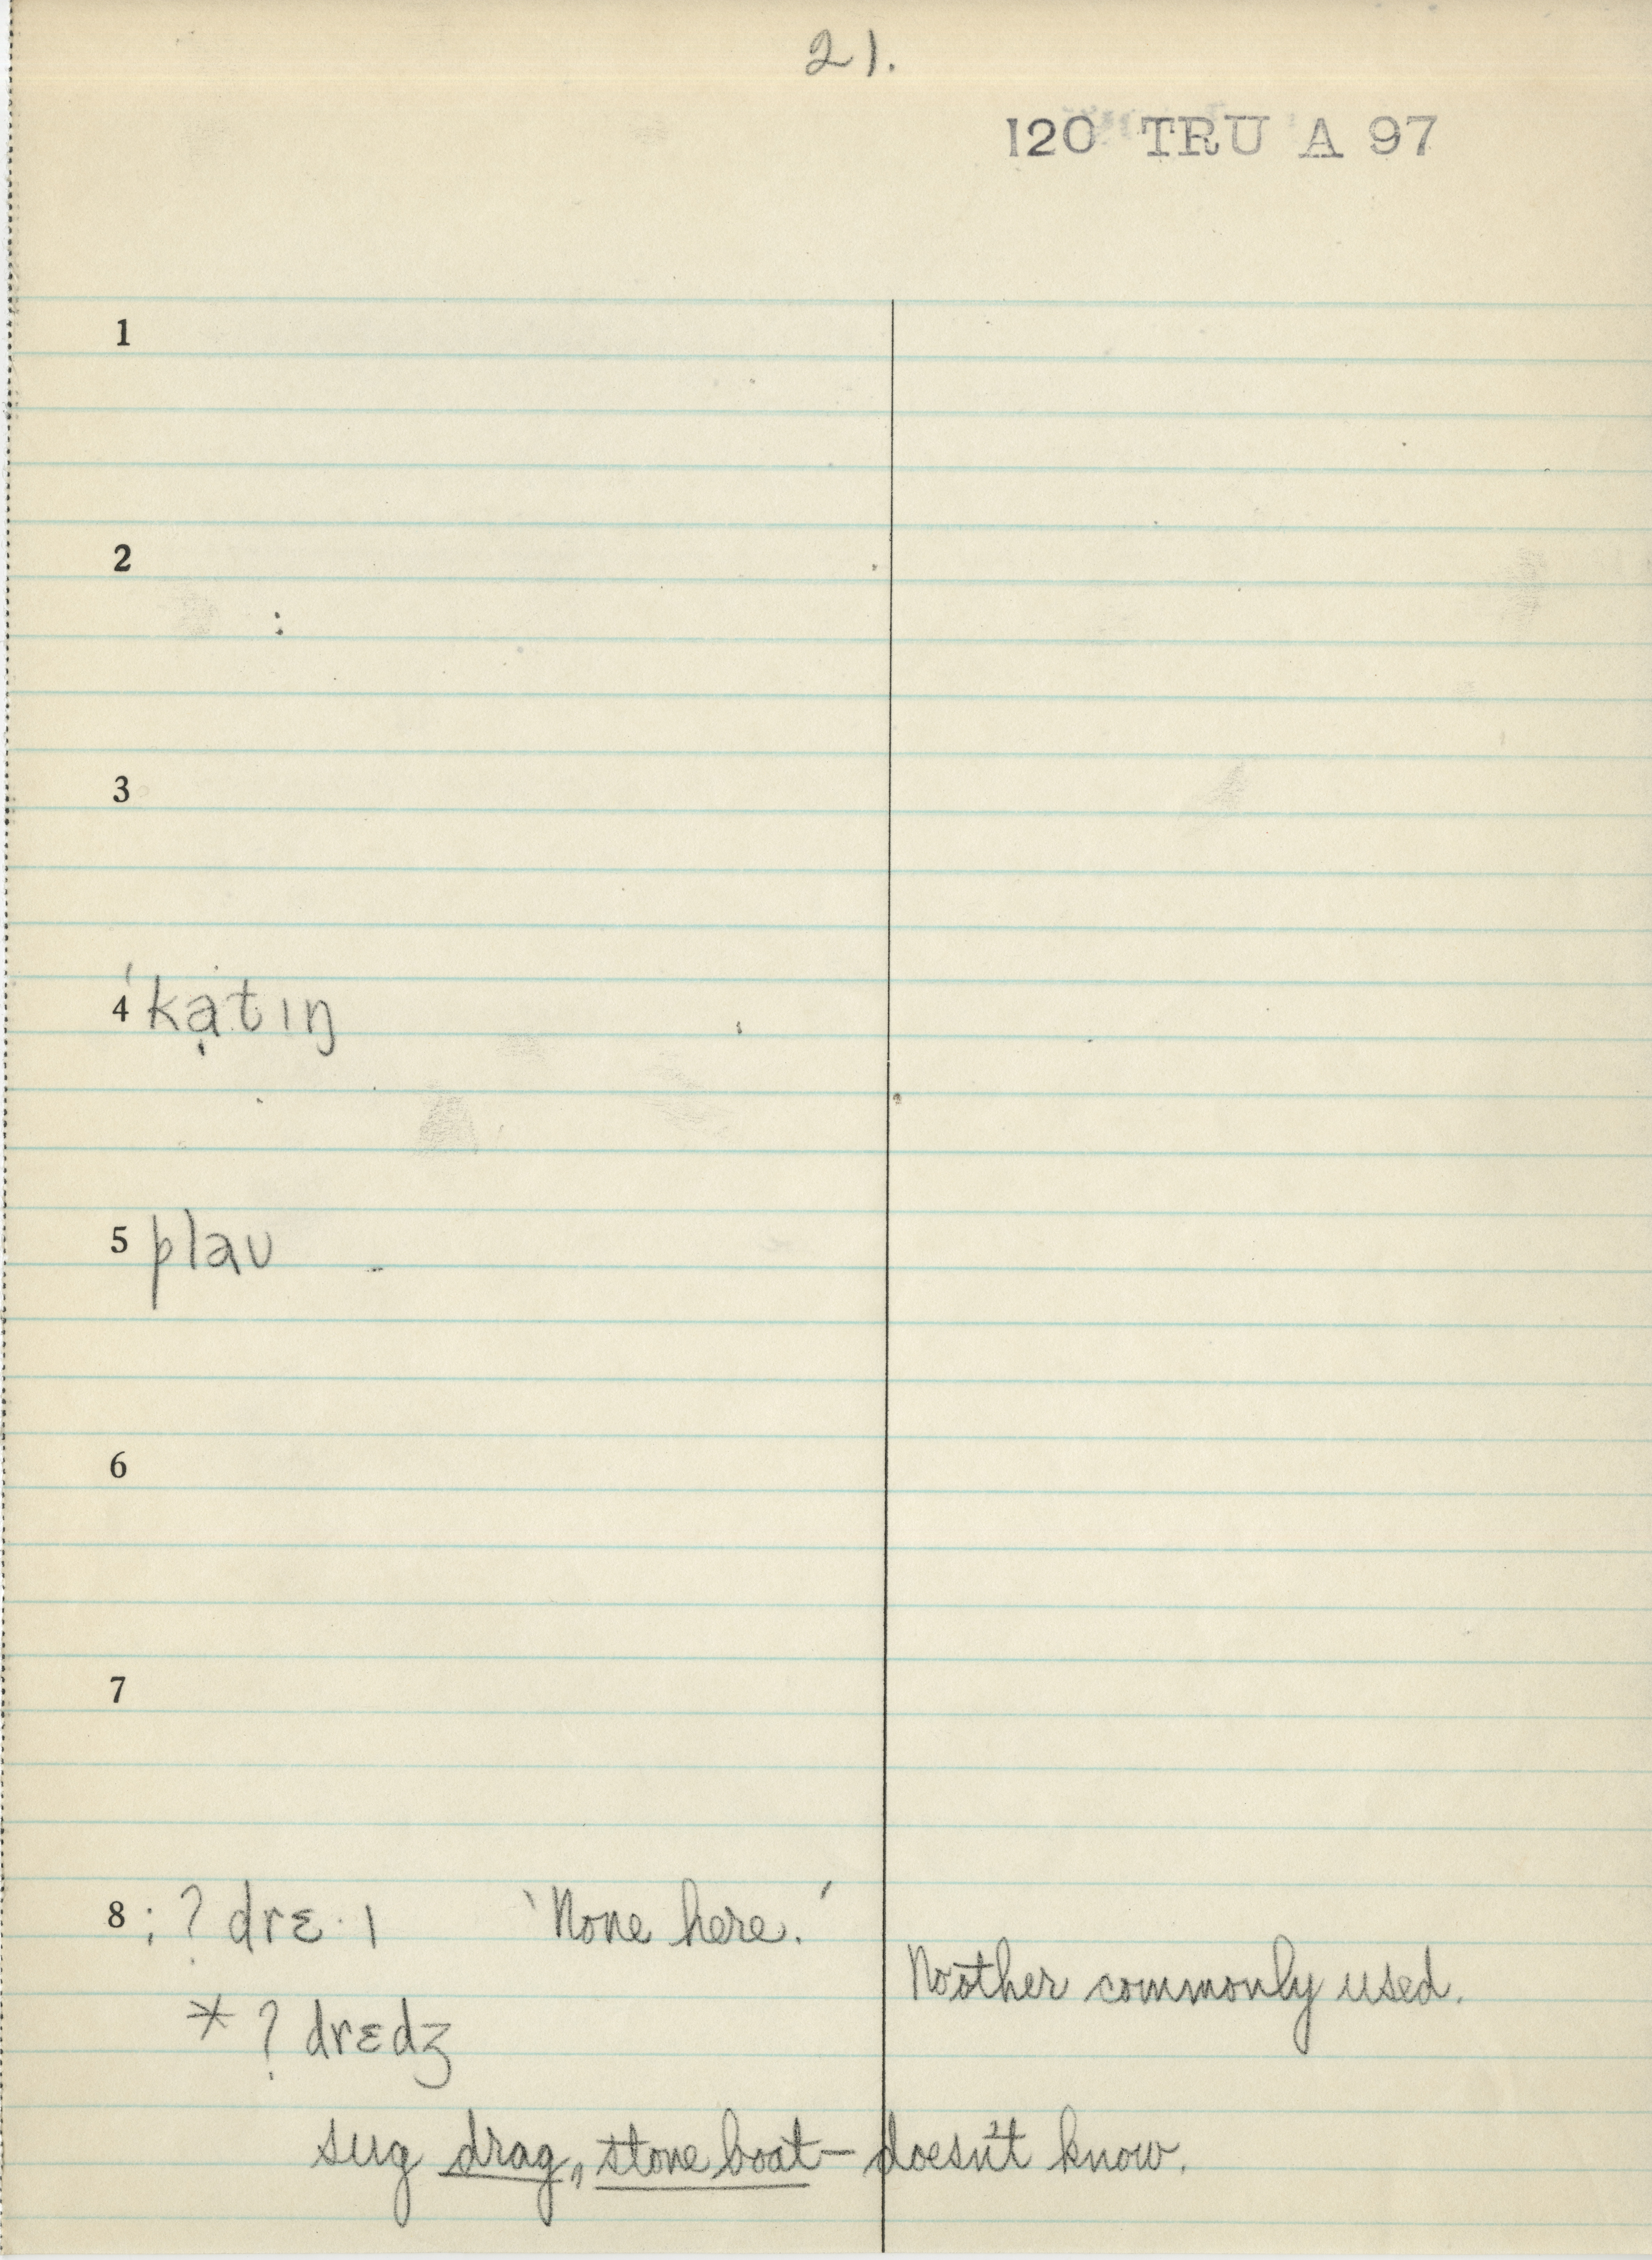 21.
120 TRU A 97
1
2
3
4 ˈkạtɪŋ
5 plaʊ
6
7
8 ; ? drɛ·ɪ 'None here.'
No other commonly used.
* ? drɛdʒ
sug drag, stone boat – doesn't know.